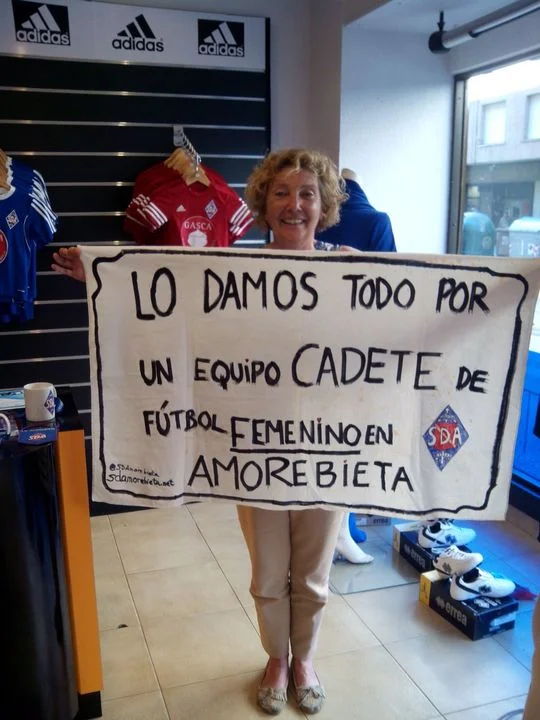 adidas
adidas
adidas
GASCA
LO DAMOS TODO POR
UN EQUIPO CADETE DE
FÚTBOL FEMENINO EN
AMOREBIETA
SDA
@sdamorebieta
sdamorebieta.net
errea
errea